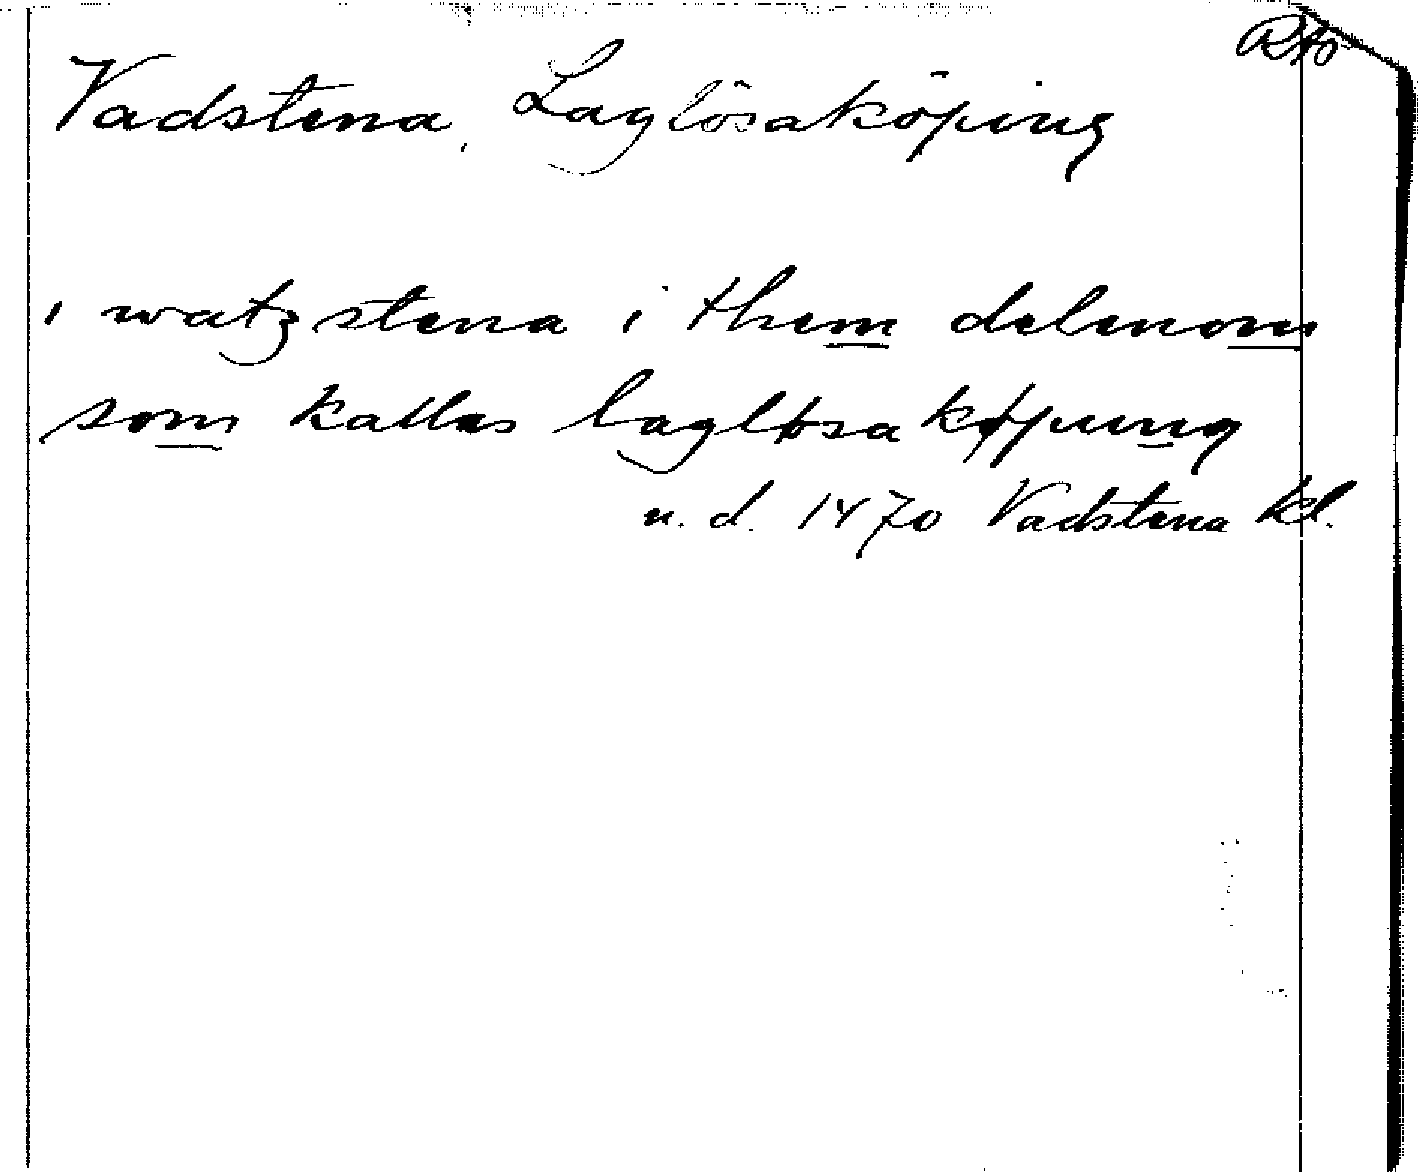 RAO
Vadstena, Laglösaköping
i watzstena i them delenom
som kallas lagløsa køpung
u. d. 1470 Vadstena kl.